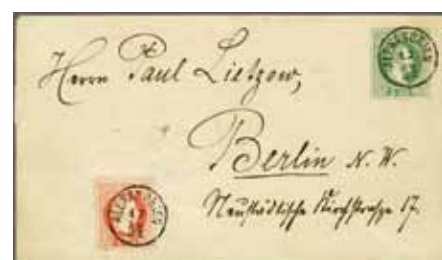 Herrn Paul Lietzow,
Berlin N. W.
Neustädtische Kirchstraße 17.